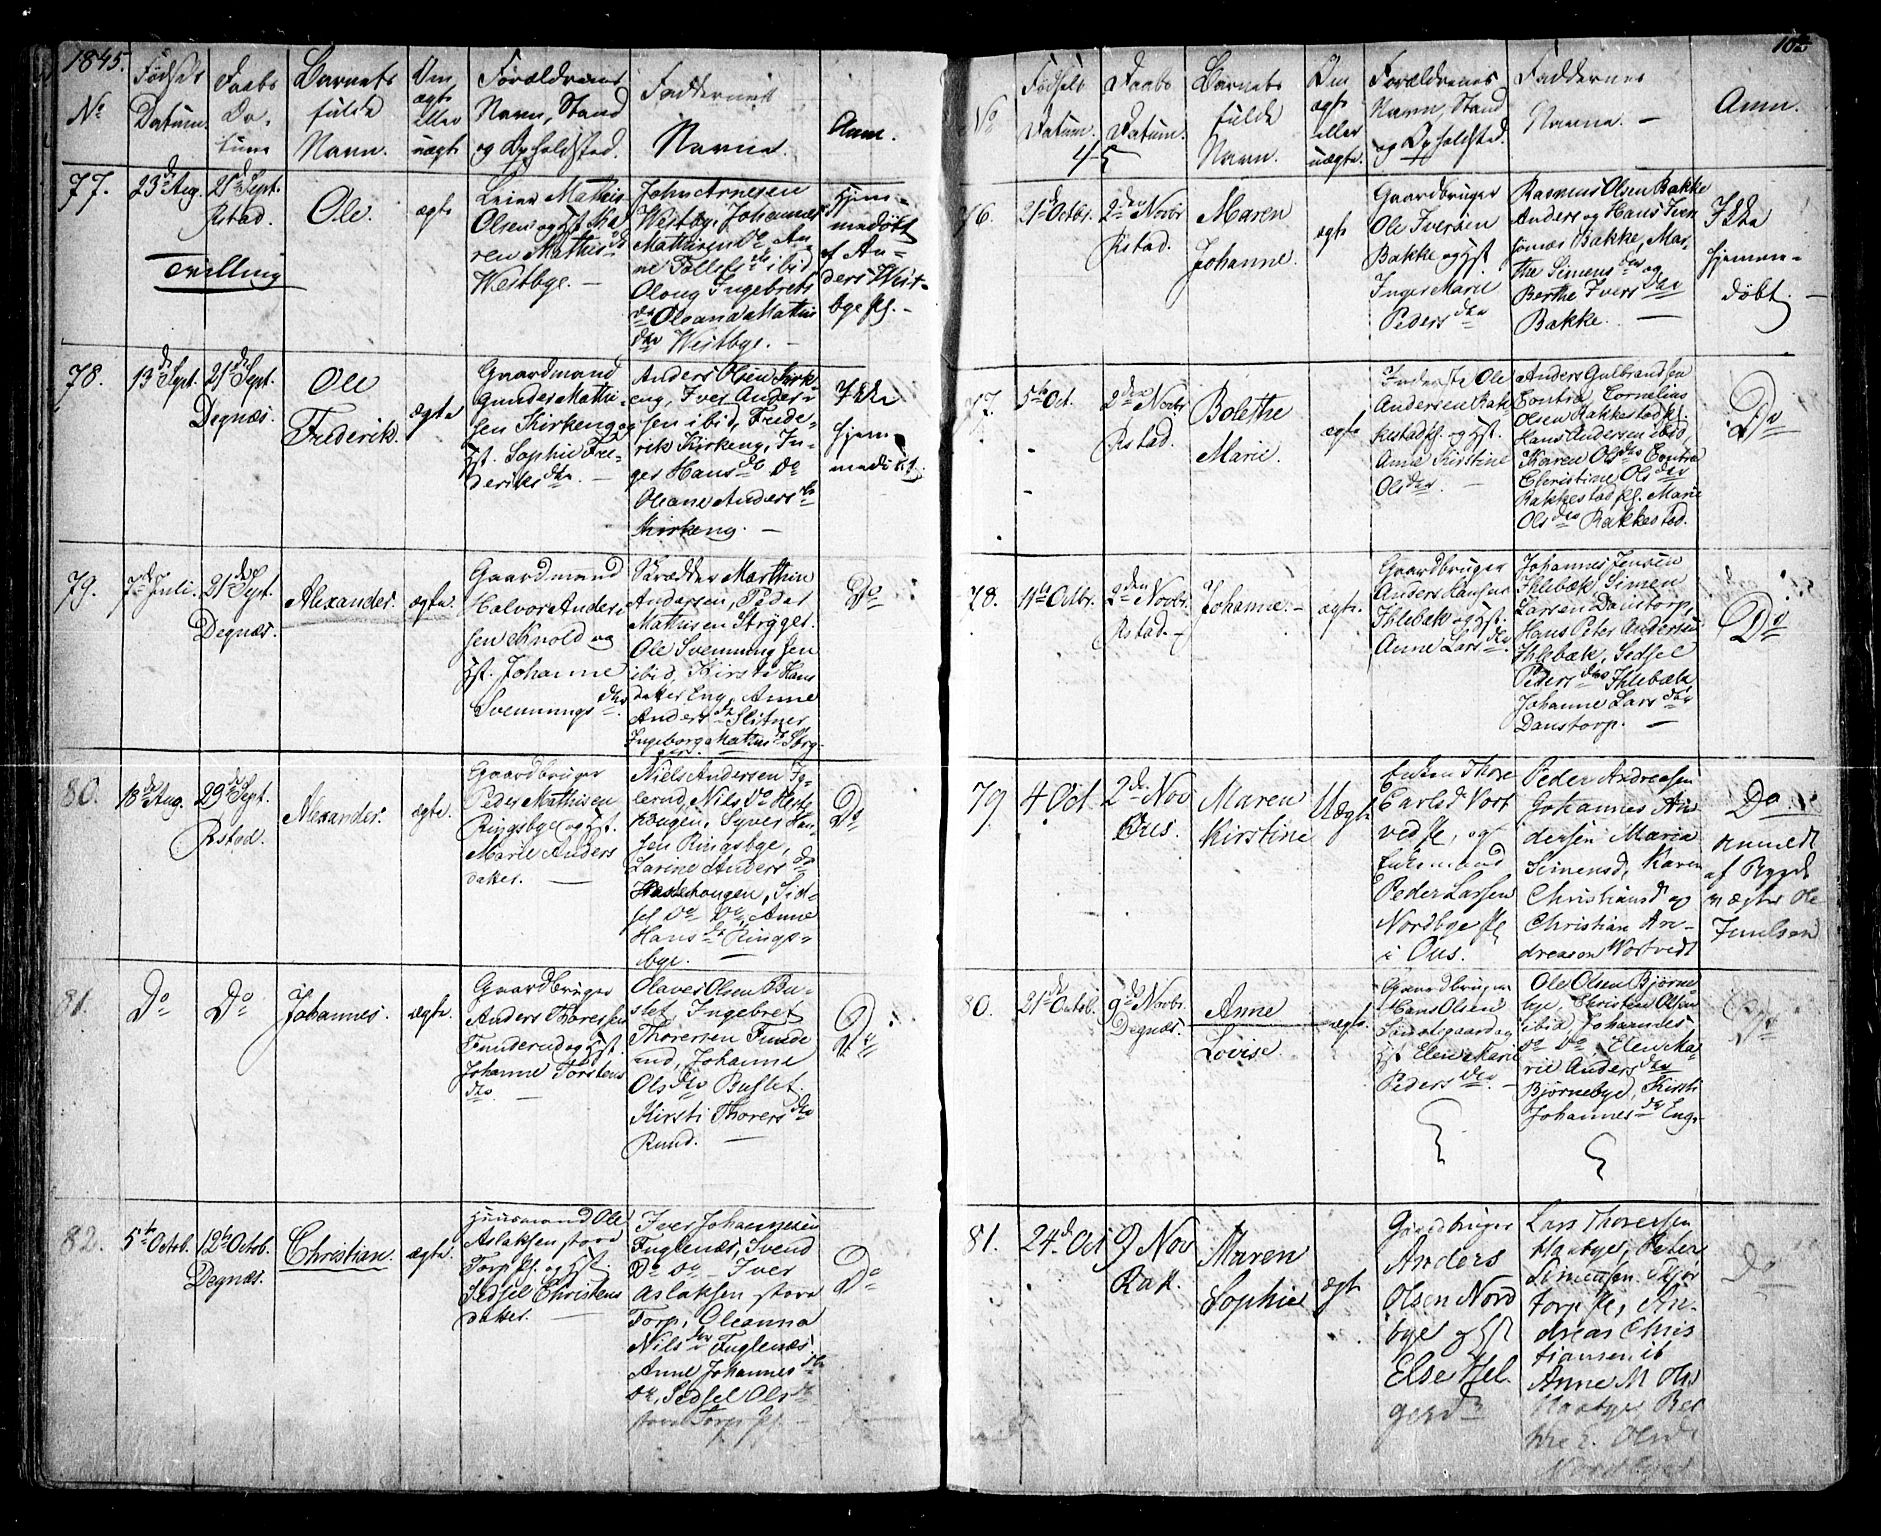 1845.
No
Fødsels
Datum.
Daabs
Da-
tum
Barnets
fulde
Navn.
Om
ægte
eller
uægte
Forældrenes
Navn, Stand
og Opholdsted.
Faddernes
Navne.
Anm.
77.
23de Aug.
21de Sept.
Rstad.
Tvilling
Ole.
ægte
Leier Mathis
Olsen og Hst. Ma-
ren Mathisdr
Westbye. —
John Arnesen
Westbye, Johannes
Mathisen Do An-
ne Tollefsdr ibid
Oloug Ingebrets
dr Oleana Mathis
dtr Westbye. —
Hjem-
medøbt
af An-
ders West-
bye pl. —
78.
13de Sept.
21de Sept.
Degnæs.
Ole
Frederik.
ægte
Gaardmand
Gunder Mathi-
sen Kirkeng og
Hst. Sophie Fre-
deriksdtr. —
Anders Olsen Kirk-
eng, Iver Ander-
sen ibid, Frede-
rik Kirkeng, In-
ger Hansdr Do
Oleane Andersdr
Kirkeng. —
Ikke
hjem-
medøbt.
79.
7de Juli.
21de Sept.
Degnæs.
Alexander.
ægte.
Gaardmand
Halvor Ander-
sen Knold og
Hst. Johanne
Svenningsdtr
Skrædder Marthin
Andersen, Peder
Mathisen Stryger.
Ole Svenningsen
ibid, Kirsti Hans
datter Eng, Anne
Andersdr Slitner
Ingeborg Mathisdr
Do
80.
18de Aug.
29de Sept.
Rstad.
Alexander.
ægte.
Gaardbruger
Peder Mathisen
Ringsbye og Hst.
Marie Anders
datter. —
Niels Andersen
Nils Do Heste-
hougen, Syver Han-
sen Ringsbye,
Larine Andersdr
Hestehougen, Sid-
sel Do Do, Anne
Hansdr Rings-
bye.
Do
81.
Do
Do
Johannes.
ægte.
Gaardbruger
Anders Thoresen
Funderud og Hst.
Johanne Torstens
dtr.
Olaves Olsen Bu-
slet, Ingebret
Thoresen Funde
rud, Johanne
Olsdtr Buslet.
Kirsti Thoresdtr
Rund. —
Do
82.
5te Octob.
12te Octob.
Degnæs.
Christian.
ægte.
Huusmand Ole
Aslaksen store
Torp pl. og Hst.
Sedsel Christens
datter.
Iver Johannesen
Fuglenæs, Svend
Do Do Iver
Aslaksen store
Torp, Oleanna
Nilsdtr Fuglenæs.
Anne Johannesdtr
Do, Sedsel Olsdr
store Torp pl.
Do
No
Fødsels
Datum.
45
Daabs
Datum.
Barnets
fulde
Navn.
Om
ægte
eller
uægte.
Forældrenes
Navn, Stand
og Opholdsted.
Faddernes
Navne. —
Anm.
76.
21de Octbr.
2den Novbr
Rstad.
Maren
Johanne.
ægte
Gaardbruger
Ole Iversen
Bakke og Hst.
Inger Marie
Pedersdtr
Rasmus Olsen Bakke
Anders og Hans Iver
sønner Bakke, Mar-
the Simensdtr og
Berthe Iversdtr
Bakke. —
Ikke
hjemme-
døbt. —
77.
5te Oct.
2den Novbr
Rstad.
Bolethe
Marie.
ægte
Inderste Ole
Andersen Rak-
kestad pl. og Hst.
Anne Kirstine
Olsdtr. —
Anders Gulbrandsen
Contra, Cornelius
Olsen Rakkestad pl.
Hans Andersen ibid,
Karen Olsdtr Contra
Christine Olsdtr
Rakkestad pl. Marie
Olsdtr Rakkestad.
Do
78.
11te Octbr.
2den Novbr.
Rstad. —
Johanne. —
ægte.
Gaardbruger
Anders Hansen
Ihlebæk og Hst.
Anne Larsdtr.
Johannes Jensen
Ihlebæk, Simen
Larsen Danstorp,
Hans Peter Andersen
Ihlebæk, Sedsel
Pedersdtr Ihlebæk
Johanne Larsdtr
Danstorp. —
Do
79
4 Oct.
2de Nov
Øies.
Maren
Kirstine
Uægte
Enken Thore
Carlsd Vort
ved pl, og
Enkemand
Peder Larsen
Nordbye pl
i Øies.
Peder Andreasen
Johannes An
dersen Maria
Simensd, Karen
Christiansd og
Christian An-
dreasen Wortvedt
Do
anmeldt
af Bygde
vægter Ole
Juulsen
80.
21de Octob.
9de Novbr.
Degnæs.
Anne
Lovise.
ægte.
Gaardbruger
Hans Olsen
og
Hst Elen Marie
Pedersdtr
Ole Olsen Bjørne-
bye, Christen Olsen
ibid, Johannes
Do Do, Elen Ma-
rie Andersdtr
Bjørnebye, Kirsti
Johannesdtr Eng.
Do
81.
24de Oct
9 Nov
Rak.
Maren
Sophie
ægte
Gaardbruger
Anders
Olsen Nord
bye og Hst
Else Hel-
gesdr
Lars Thoresen
Haabye, Peter
Simensen Skjør
torp pl, An-
dreas Chris
tiansen ib
Anne M Olsd
Haabye Ber
the E. Olsdr
Nordbye
Do